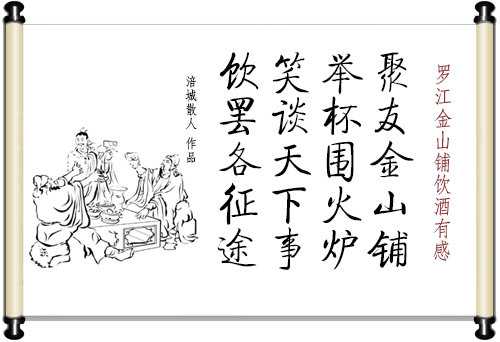 罗江金山铺饮酒有感
聚友金山铺
举杯围火炉
笑谈天下事
饮罢各征途
涪城散人 作品